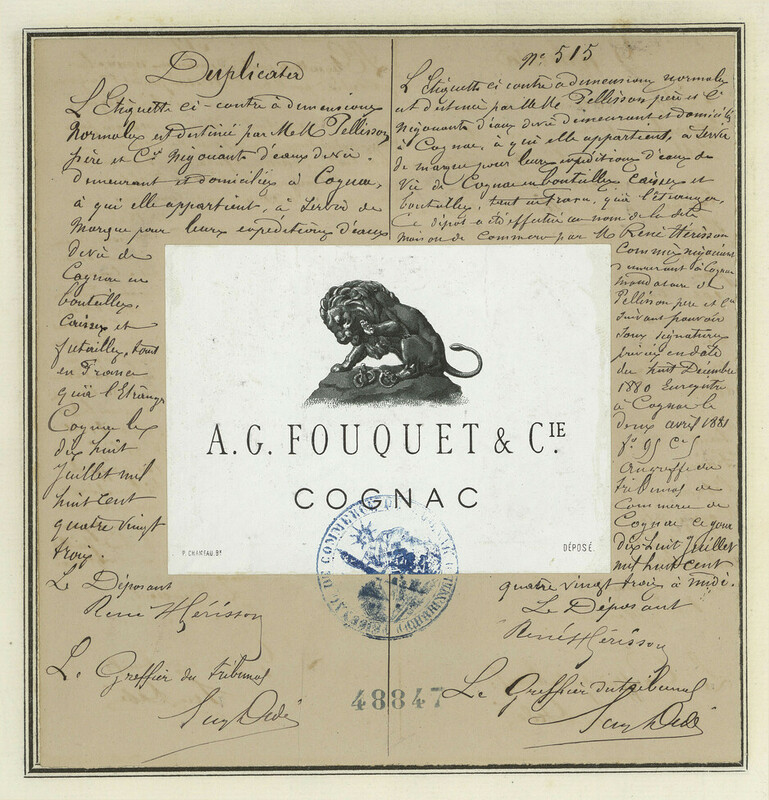 Duplicata
L'Etiquette ci-contre à dimensions
normales est destinée par MM Pellisson
père et Cie Négociants d'eaux de vie
demeurant et domiciliés à Cognac,
à qui elle appartient, à servir de
marque pour leurs expéditions d'eaux
de vie de
Cognac en
bouteilles,
Caisses et
futailles, tant
en France
qu'à l'Etranger
Cognac le
dix huit
Juillet mil
huit cent
quatre vingt
trois.
Le Déposant
René Hérisson
Le Greffier du tribunal
N° 515
L'Etiquette ci contre à dimensions normales
est destinée par MM Pellisson père et Cie
Négociants d'eaux de vie demeurant et domiciliés
à Cognac, à qui elle appartient, à servir
de marque pour leurs expéditions d'eaux de
Vie de Cognac en bouteilles caisses et
futailles, tant en France, qu'à l'étranger,
Ce dépôt a été effectué au nom de la dite
maison de commerce par M René Hérisson
Commis négociant
demeurant à Cognac
mandataire de
Pellisson père et Cie
suivant pouvoir
sous signature
privée en date
du huit Décembre
1880 Enregistré
à Cognac le
deux avril 1881
f° 95 C 5
au greffe du
tribunal de
Commerce de
Cognac ce jour
dix huit Juillet
mil huit cent
quatre vingt trois à midi.
Le Déposant
René Hérisson
Le Greffier du tribunal
A.G. FOUQUET & CIE.
COGNAC
P. CHANTAU. BX
DÉPOSÉ.
TRIBUNAL DE COMMERCE DE
48847